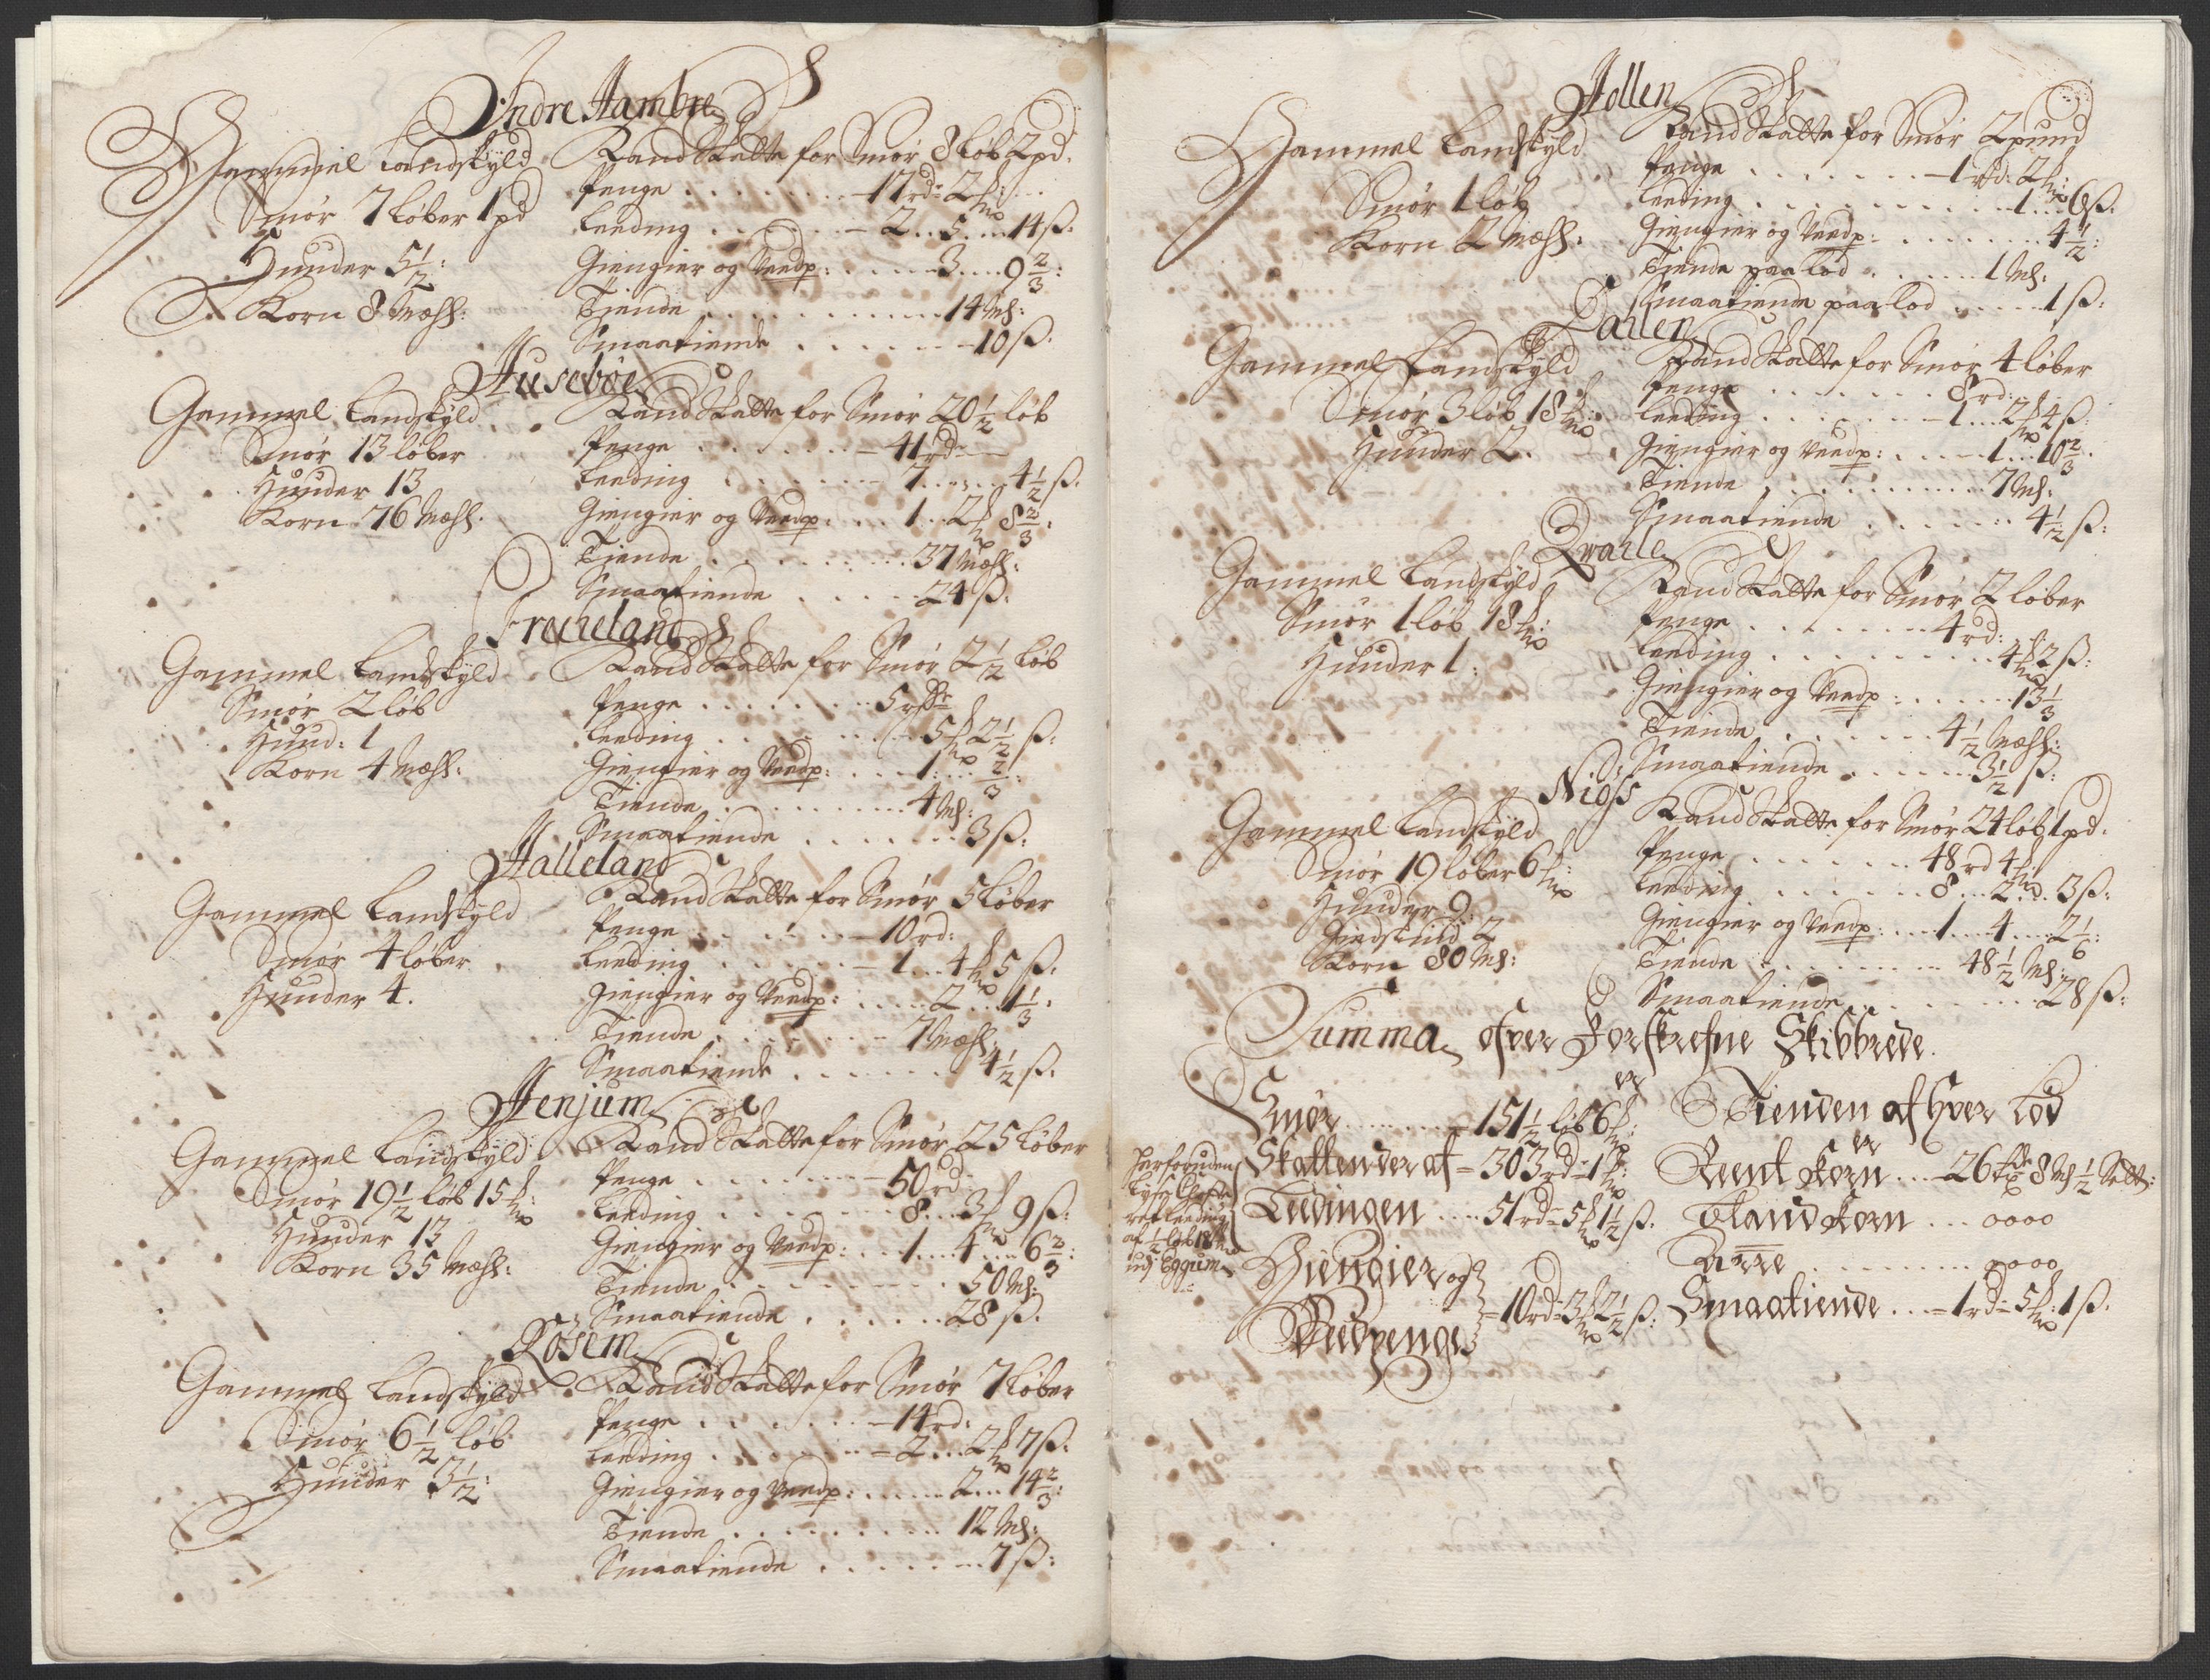 Indre Hambre
Gammel Landskyld
Smør 7 Løber 1 pd
Huuder 5 1/2:
Korn 8 Mæhl:
Land Skatte for Smør 8 Løb 2 pd.
Penge . . . . . . . 17 rd: 2 mk
Leeding . . . . . . 2 . . 5 . . . 14 ß.
Giengier og Veedp: . . . . . . 3 . . . 9 2/3:
Tiende . . . . . . . . 14 M:
Smaatiende . . . . . . 10 ß.
Husebøe
Gammel Landskyld
Smør 13 løber
Huuder 13
Korn 76 Mæhl.
Land Skatte for Smør 20 1/2 løb
Penge . . . . . . . 41 rd
Leeding . . . . . . 7 . . . . . 4 1/2 ß.
Giengier og Veedp. . . . 1 . . 2 mk 8 2/3:
Tiende . . . . . . . . 37 Mæhl:
Smaatiende . . . . . 24 ß.
Frecheland
Gammel Landskyld
Smør 2 løb
Huud: 1
Korn 4 Mæhl:
Land Skatte for Smør 2 1/2 Løb
Penge . . . . . . . 5 rdr
Leeding . . . . . . 5 mk 2 1/2 ß:
Giengier og Veedp: . . . . 1 . . . 2/3:
Tiende . . . . . . . . 4 M:
Smaatiende . . . . . . 3 ß:
Halleland
Gammel Landskyld
Smør 4 løber
Huuder 4.
Land Skatte for Smør 5 Løber
Penge . . . . . . . 10 rd:
Leeding . . . . . . 1 . . . 4 mk 5 ß:
Giengier og Veedp: . . . . . 2 . . . 1 1/3:
Tiende . . . . . . . 7 Mæhl:
Smaatiende . . . . . . 4 1/2 ß.
Henjum
Gammel Landskyld
Smør 19 1/2 løb 15 mk:
Huuder 13
Korn 35 Mæhl:
Land Skatte for Smør 25 Løber
Penge . . . . . . . 50 rd
Leeding . . . . . . 8 . . . 3 mk 9 ß:
Giengier og Veedp: . . . 1 . . . 4 . . . 6 2/3:
Tiende . . . . . . . . 50 M:
Smaatiende . . . . . . 28 ß.
Røsem
Gammel Landskyld
Smør 6 1/2 løb
Huuder 3 1/2:
Land Skatte for Smør 7 Løber
Penge . . . . . . . 14 rd:
Leeding . . . . . . 2 . . . 2 mk 7 ß:
Giengier og Veedp: . . . . . . 2 . . . 14 2/3:
Tiende . . . . . . . . 12 M:
Smaatiende . . . . . . 7 ß:
Hollen
Gammel Landskyld
Smør 1 løb
Korn 2 Mæhl:
Land Skatte for Smør 2 pund
Penge . . . . . . . 1 rd: 2 mk:
Leeding . . . . . . . . . 1 . . . 6 ß.
Giengier og Veedp: . . . . . . . 4 1/2:
Tiende paa lod . . . . . 1 M:
Smaatiende paa lod . . . . . 1 ß:
Dallen
Gammel Landskyld
Smør 3 løb 18 mk:
Huuder 2.
Land Skatte for Smør 4 løber
Penge . . . . . . . 8 rd:
Leeding . . . . . . 1 . . . 2 mk 4 ß:
Giengier og Veedp: . . . . . 1 . . . 10 2/3.
Tiende . . . . . . . . 7 M:
Smaatiende . . . . . . 4 1/2 ß:
Qvalle
Gammel Landskyld
Smør 1 løb 18 mk:
Huuder 1:
Land Skatte for Smør 2 Løber
Penge . . . . . . . 4 rd:
Leeding . . . . . . . . . 4 mk 2 ß:
Giengier og Veedp: . . . . . . 13 1/3
Tiende . . . . . . . 4 1/2 Mæhl:
Smaatiende . . . . . . 3 1/2 ß:
Niøss
Gammel Landskyld
Smør 19 løber 6 mk:
Huuder 9:
Giedskind 2
Korn 80 M:
Land Skatte for Smør 24 Løb 1 pd.
Penge . . . . . . . 48 rd 4 mk
Leeding . . . . . . 8 . . . 2 . . . 3 ß:
Giengier og Veedp: . . . . 1 . . . 4 . . . 2 1/6:
Tiende . . . . . . . . 48 1/2 M:
Smaatiende . . . . . . . . 28 ß:
Summa ofver Forskrefne Skibbrede.
Smør . . . . . . . 151 1/2 løb 6 mk:
Skattender af = 303 rd = 1 mk:
Leedingen . . . . 51 rd = 5 mk 1 1/2 ß.
Giengier og
Veedpenge = 10 rd = 3 mk 2 1/2 ß:
Herforuden
af 1/2 Løb 18 mk
udj Eggum
Tienden af Hver Lod
Reent Korn . . . 26 8 M 1/2
Bland Korn . . . 0000
. . . . . . . . . 0000
Smaatiende . . . = 1 rd = 5 mk: 1 ß.